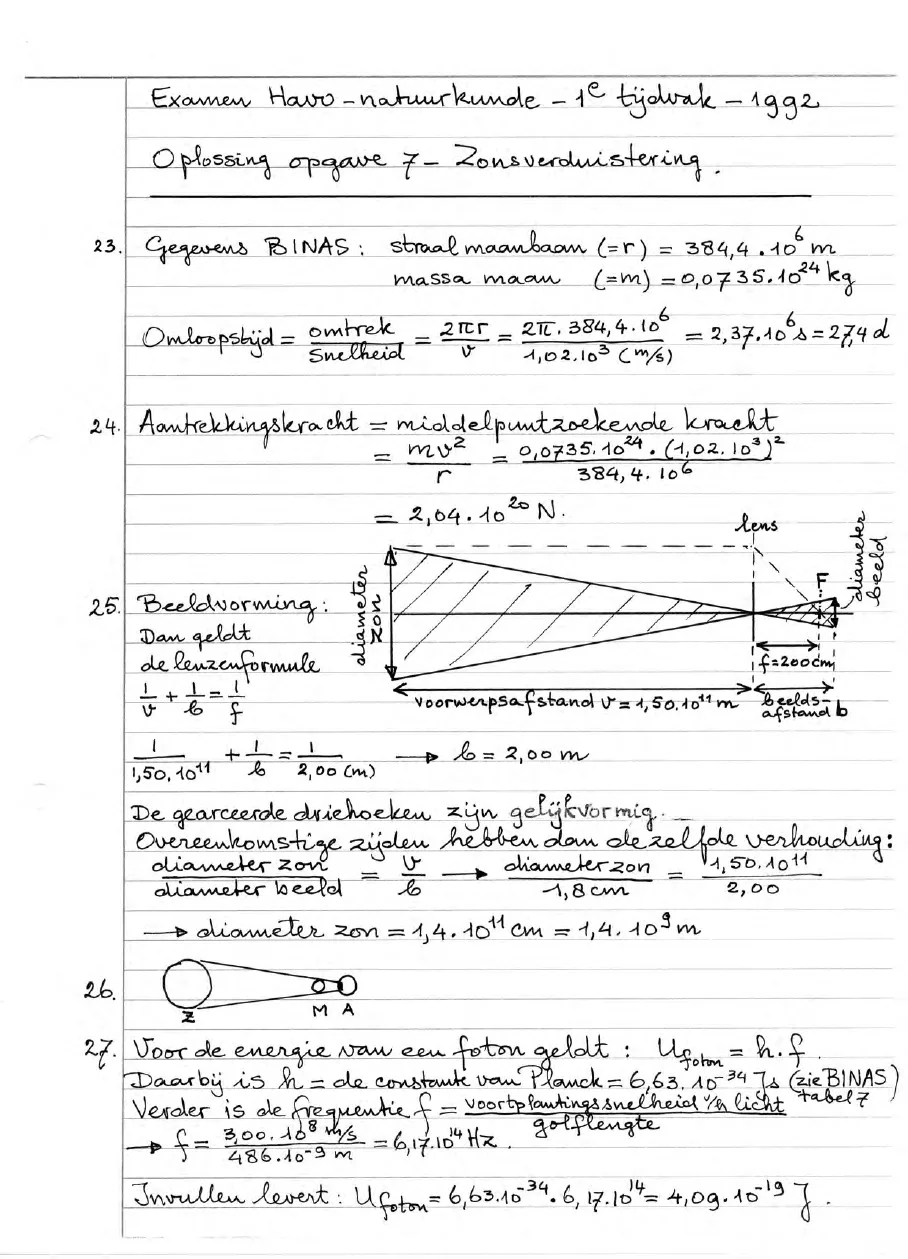 Examen Havo - natuurkunde - 1e tijdvak - 1992
Oplossing opgave 7 - Zonsverduistering.
23. Gegevens BINAS: straal maanbaan (=r) = 384,4 . 10⁶ m
massa maan (=m) = 0,0735.10²⁴ kg
Omloopstijd = omtrek / snelheid = 2πr / v = 2π . 384,4 . 10⁶ / 1,02.10³ (m/s) = 2,37.10⁶ s = 27,4 d
24. Aantrekkingskracht = middelpuntzoekende kracht
= mv² / r = 0,0735.10²⁴ . (1,02.10³)² / 384,4 . 10⁶
= 2,04 . 10²⁰ N.
lens
diameter zon
F
diameter beeld
25. Beeldvorming:
Dan geldt
de lenzenformule
1/v + 1/b = 1/f
f=200cm
voorwerpsafstand v = 1,50.10¹¹ m
beelds-
afstand b
1 / 1,50.10¹¹ + 1/b = 1 / 2,00 (m) → b = 2,00 m
De gearceerde driehoeken zijn gelijkvormig.
Overeenkomstige zijden hebben dan dezelfde verhouding:
diameter zon / diameter beeld = v / b → diameter zon / 1,8 cm = 1,50.10¹¹ / 2,00
→ diameter zon = 1,4 . 10¹¹ cm = 1,4 . 10⁹ m
26.
Z M A
27. Voor de energie van een foton geldt: U foton = h.f.
Daarbij is h = de constante van Planck = 6,63 . 10⁻³⁴ Js (zie BINAS tabel 7)
Verder is de frequentie f = voortplantingssnelheid v/h licht / golflengte
→ f = 3,00 . 10⁸ m/s / 486.10⁻⁹ m = 6,17.10¹⁴ Hz.
Invullen levert: U foton = 6,63.10⁻³⁴ . 6,17.10¹⁴ = 4,09.10⁻¹⁹ J.